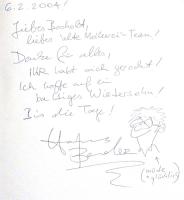 6.2.2004!
Liebes Bocholt,
liebes Team!
Danke für alles,
Ihr habt mich gerockt!
Ich hoffe auf ein
baldiges Wiedersehn!
Bis die Tage!
müde
+ glücklich